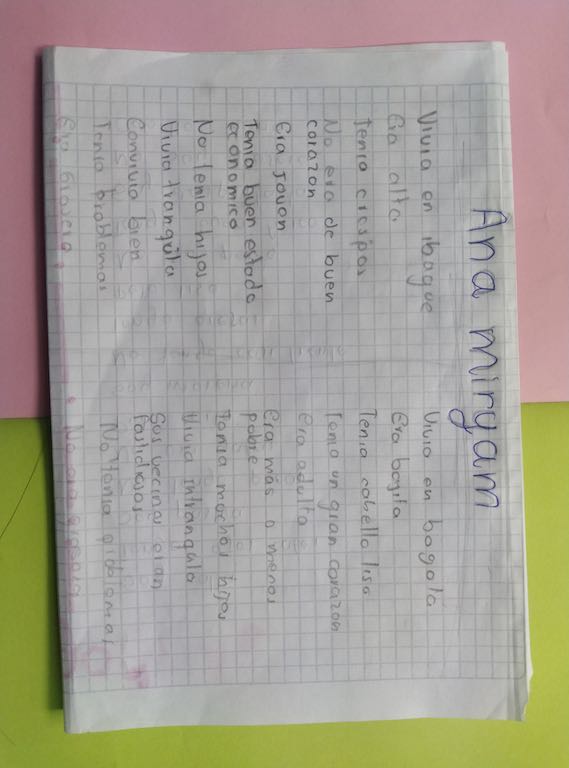 Ana miryam
Vivia en ibague
Era alta
Tenia crespos
No era de buen
corazon
Era joven
Tenia buen estado
economico
No tenia hijos
Vivia tranquila
Convivia bien
Tenia problemas
Era grosera
Vivia en bogota
Era bajita
Tenia cabello liso
Tenia un gran corazon
Era adulta
Era más o menos
pobre
Tenia muchos hijos
Vivia intranquila
Sus vecinas eran
fastidiosas
No tenia problemas
No era grosera